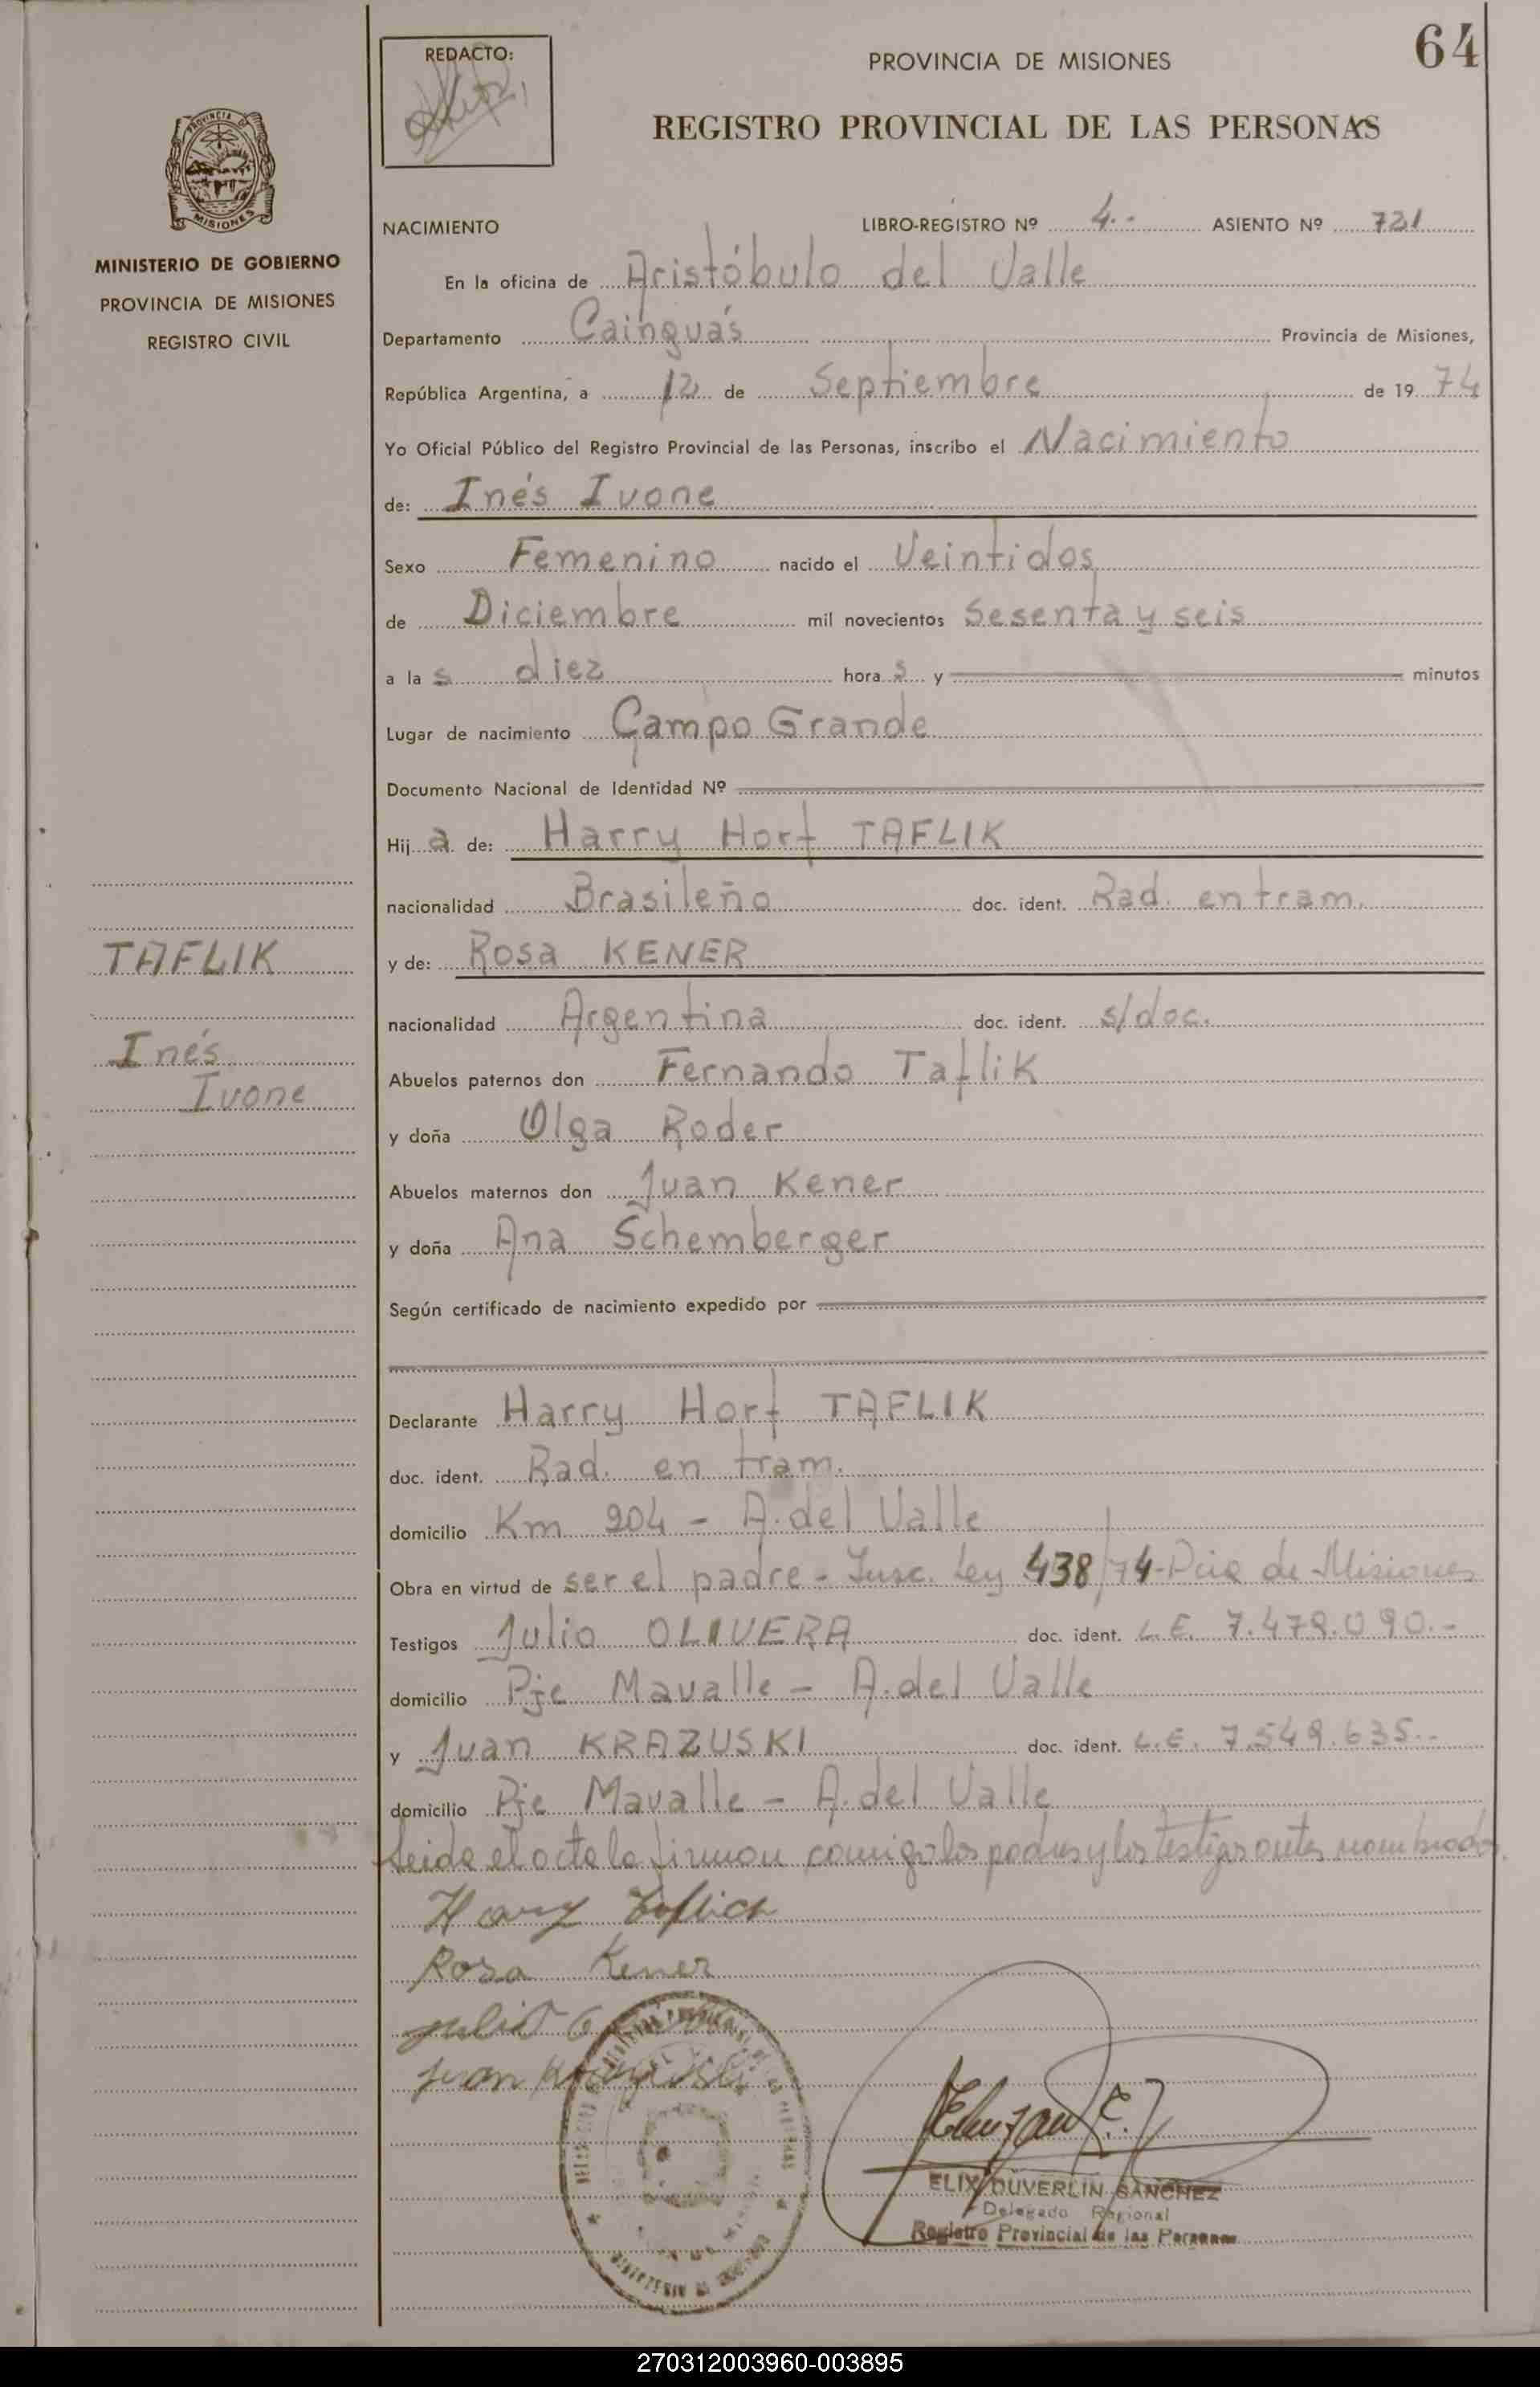 64
REDACTO:
PROVINCIA DE MISIONES
REGISTRO PROVINCIAL DE LAS PERSONAS
PROVINCIA DE
MISIONES
MINISTERIO DE GOBIERNO
PROVINCIA DE MISIONES
REGISTRO CIVIL
NACIMIENTO LIBRO-REGISTRO Nº 4.- ASIENTO Nº 721
En la oficina de Aristóbulo del Valle
Departamento Cainguás Provincia de Misiones,
República Argentina, a 12 de Septiembre de 1974
Yo Oficial Público del Registro Provincial de las Personas, inscribo el Nacimiento
de: Inés Ivone
Sexo Femenino nacido el Veintidos
de Diciembre mil novecientos Sesenta y seis
a la s diez hora s y minutos
Lugar de nacimiento Campo Grande
Documento Nacional de Identidad Nº
Hij a de: Harry Horf TAFLIK
nacionalidad Brasileño doc. ident. Rad. en tram.
y de: Rosa KENER
nacionalidad Argentina doc. ident. s/doc.
Abuelos paternos don Fernando Taflik
y doña Olga Roder
Abuelos maternos don Juan Kener
y doña Ana Schemberger
Según certificado de nacimiento expedido por
Declarante Harry Horf TAFLIK
doc. ident. Rad. en tram.
domicilio Km 204 - A. del Valle
Obra en virtud de ser el padre - Insc. Ley 438/74-Pcia de Misiones
Testigos Julio OLIVERA doc. ident. L.E. 7.479.090.-
domicilio Pje Mavalle - A. del Valle
y Juan KRAZUSKI doc. ident. L.E. 7.549.635.-
domicilio Pje Mavalle - A. del Valle
Leida el acta la firman comigo los padres y los testigos antes nombrados.
Harry Taflich
Rosa Kener
Julio
Juan
ELIX DUVERLIN SANCHEZ
Delegado Regional
Registro Provincial de las Personas
TAFLIK
Inés
Ivone
270312003960-003895